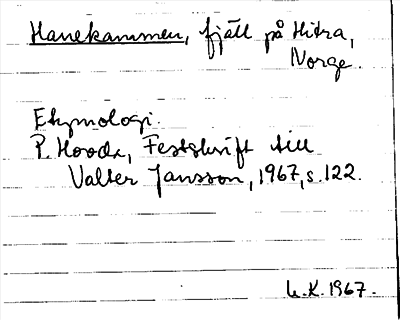 Hanekammen, fjäll på Hitra,
Norge.
Etymologi.
P. Hovda, Festskrift till
Valter Jansson, 1967, s. 122.
U.K. 1967.